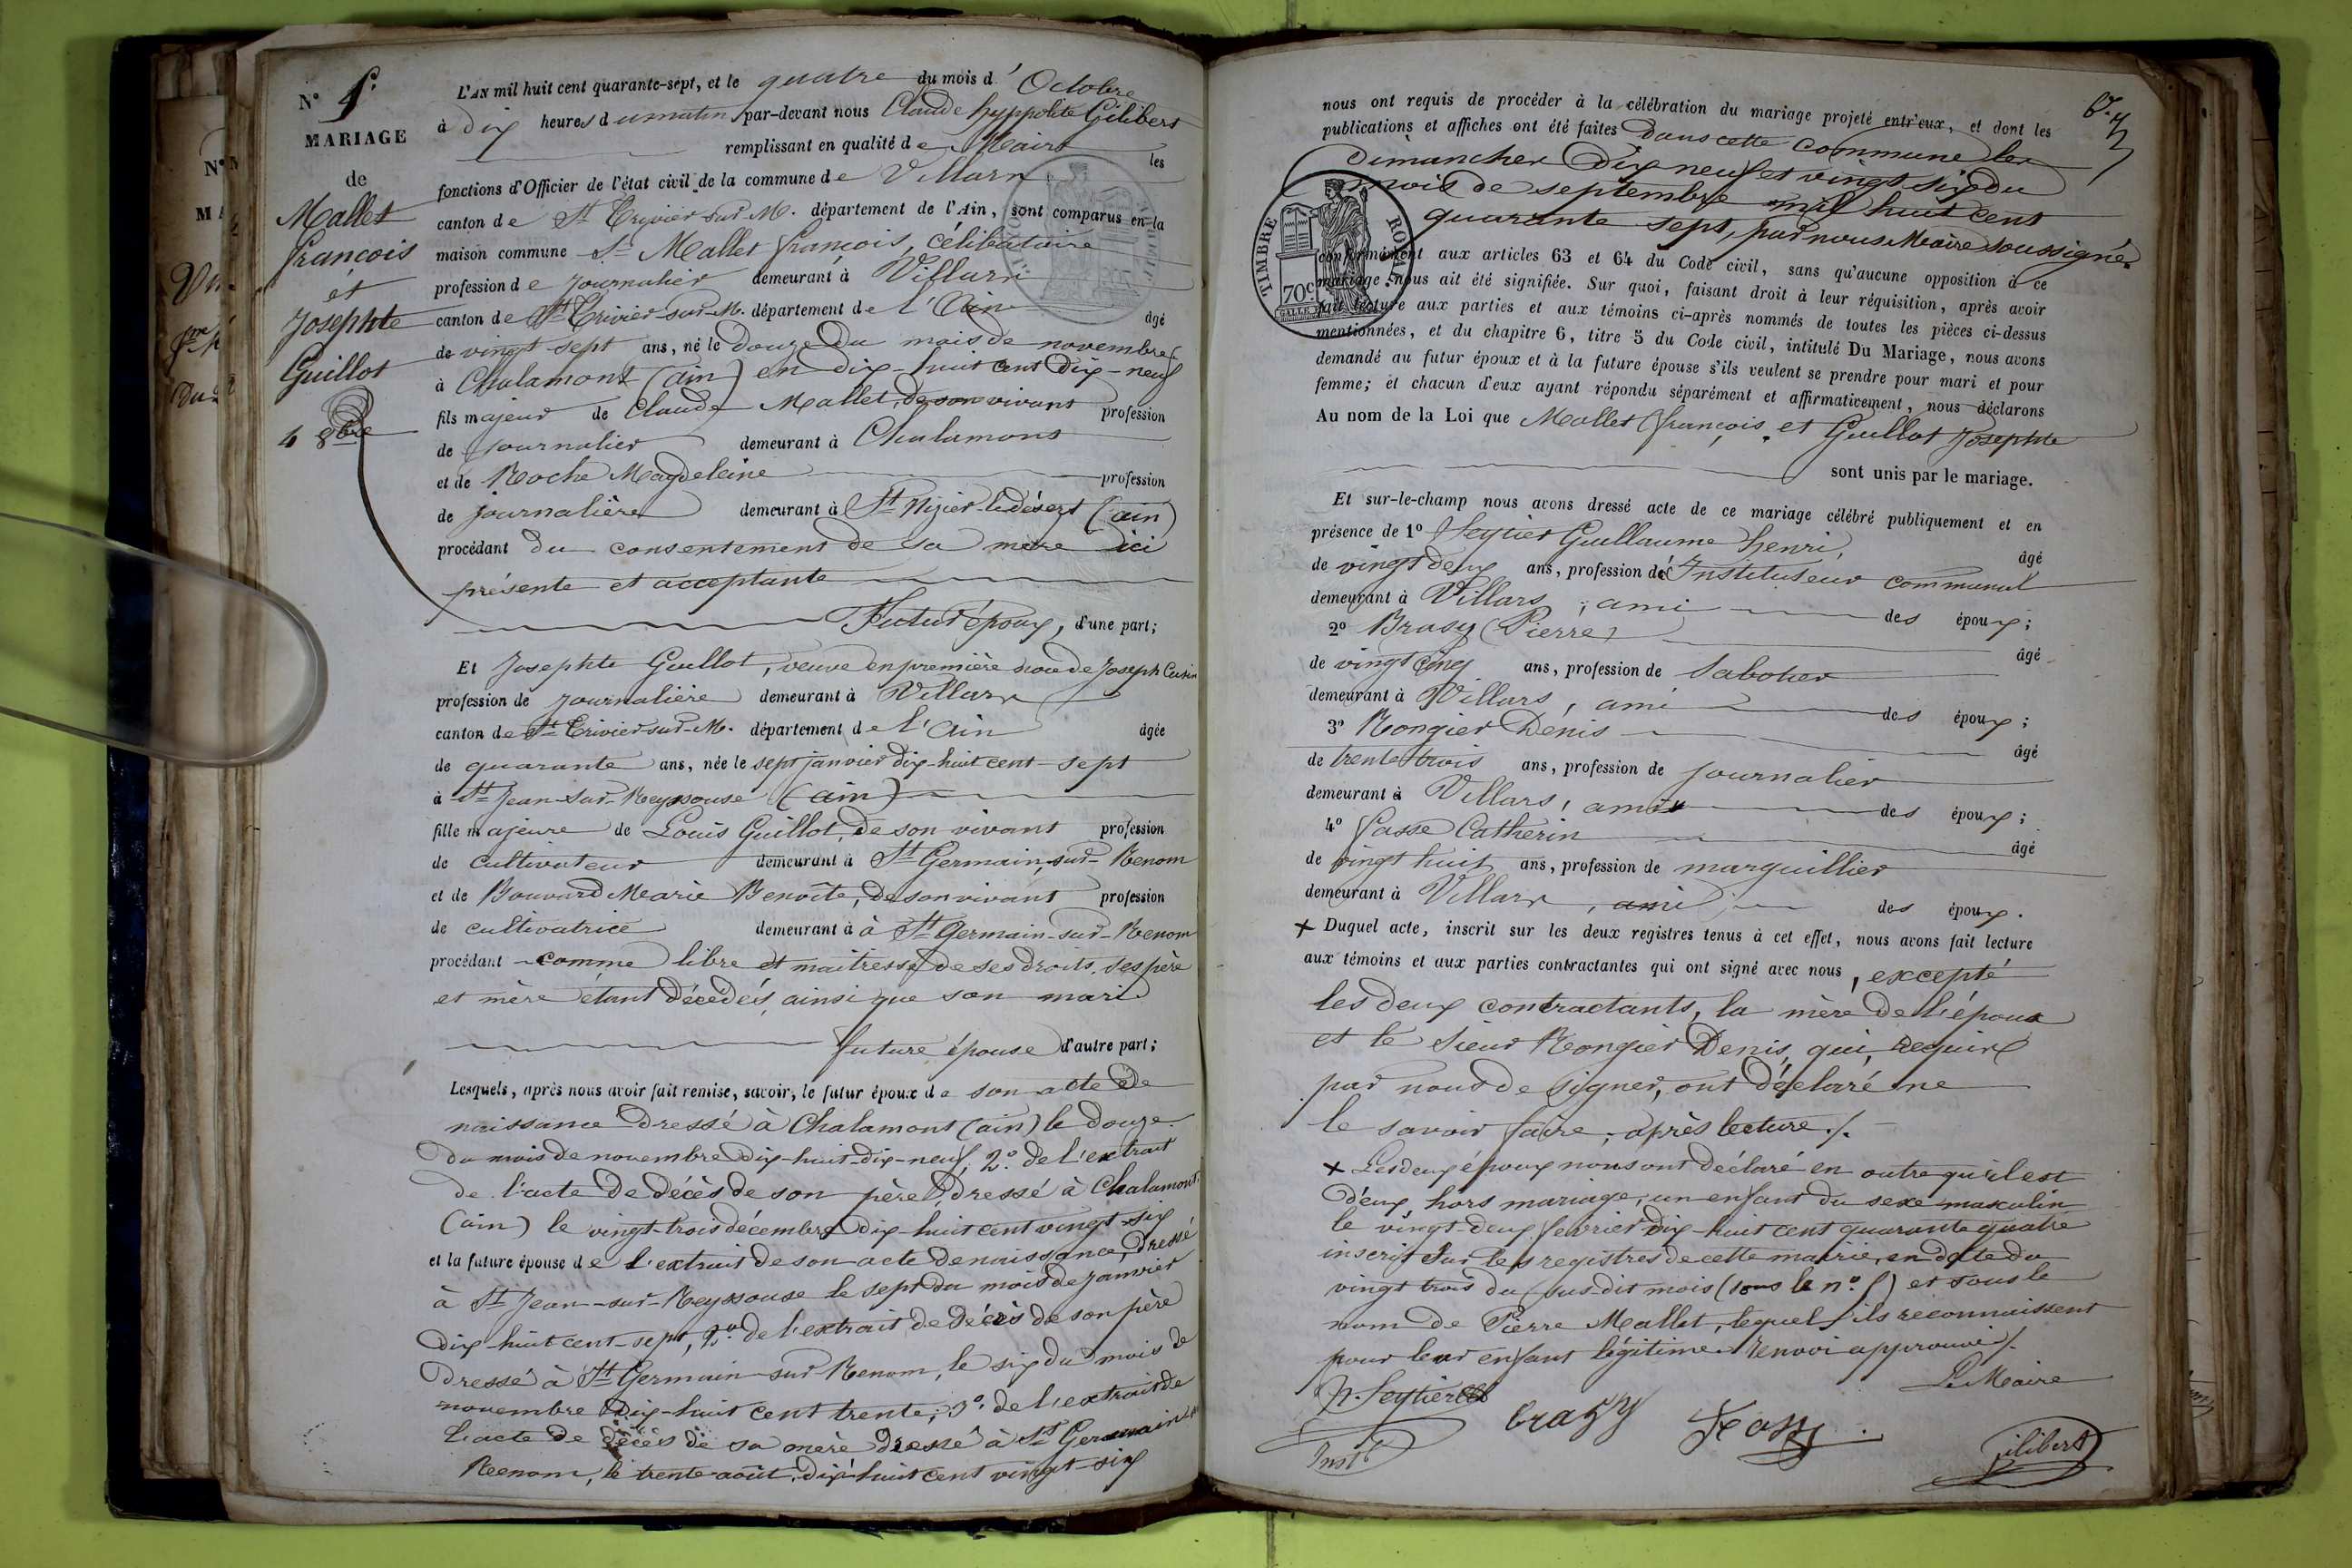 N°
MARIAGE
de
Mallet
françois
et
Josephte
Guillot
4 8bre
L'AN mil huit cent quarante-sept, et le quatre du mois d'Octobre
à dix heures du matin par-devant nous Claude hyppolite Gilibert
remplissant en qualité de Maire les
fonctions d'Officier de l'état civil de la commune de Villars
canton de St Trivier-sur-M. département de l'Ain, sont comparus en la
maison commune Sr Mallet françois, célibataire
profession de journalier demeurant à Villars
canton de St Trivier-sur-M. département de l'Ain âgé
de vingt sept ans, né le douze du mois de novembre
à Chalamont (ain) en dix-huit cent dix-neuf
fils majeur de Claude Mallet, de son vivant profession
de journalier demeurant à Chalamont
et de Roche Magdeleine profession
de journalière demeurant à St Nizier-le-désert (ain)
procédant du consentement de sa mère ici
présente et acceptante
Futur époux, d'une part;
Et Josephte Guillot, veuve en première noce de Joseph Cusin
profession de journalière demeurant à Villars
canton de St Trivier-sur-M. département de l'Ain âgée
de quarante ans, née le sept janvier dix-huit cent-sept
à St Jean-sur-Reyssouse (ain)
fille majeure de Louis Guillot, de son vivant profession
de cultivateur demeurant à St Germain-sur-Renom
et de Bouvard Marie Benoîte, de son vivant profession
de cultivatrice demeurant à à St Germain-sur-Renom
procédant comme libre et maîtresse de ses droits, ses père
et mère étant décédés, ainsi que son mari
future épouse d'autre part;
Lesquels, après nous avoir fait remise, savoir, le futur époux de son acte de
naissance dressé à Chalamont (ain) le douze
du mois de novembre dix-huit-dix-neuf, 2° de l'extrait
de l'acte de décès de son père, dressé à Chalamont
(ain) le vingt-trois décembre dix-huit cent vingt-six
et la future épouse de l'extrait de son acte de naissance, dressé
à St Jean-sur-Reyssouse le sept du mois de janvier
dix-huit cent-sept, 2° de l'extrait de décès de son père
dressé à St Germain-sur-Renom, le six du mois de
novembre dix-huit cent trente; 3° de l'extrait de
l'acte de décès de sa mère dressé à St Germain
Renom, le trente août, dix-huit cent vingt-six
nous ont requis de procéder à la célébration du mariage projeté entr'eux, et dont les
publications et affiches ont été faites dans cette commune les
dimanches dix neuf et vingt-six du
mois de septembre mil huit cent
quarante sept, par nous Maire soussigné
TIMBRE ROYAL
70c
conformément aux articles 63 et 64 du Code civil, sans qu'aucune opposition à ce
mariage nous ait été signifiée. Sur quoi, faisant droit à leur réquisition, après avoir
fait lecture aux parties et aux témoins ci-après nommés de toutes les pièces ci-dessus
mentionnées, et du chapitre 6, titre 5 du Code civil, intitulé Du Mariage, nous avons
demandé au futur époux et à la future épouse s'ils veulent se prendre pour mari et pour
femme; et chacun d'eux ayant répondu séparément et affirmativement, nous déclarons
Au nom de la Loi que Mallet françois et Guillot Josephte
sont unis par le mariage.
Et sur-le-champ nous avons dressé acte de ce mariage célébré publiquement et en
présence de 1° Seytier Guillaume henri, âgé
de vingt deux ans, profession d'Instituteur communal
demeurant à Villars, ami des époux;
2° Brasy (Pierre) âgé
de vingt cinq ans, profession de Sabotier
demeurant à Villars, ami des époux;
3° Rongier Denis âgé
de trente trois ans, profession de journalier
demeurant à Villars, ami des époux;
4° Fasse Catherin âgé
de vingt huit ans, profession de marguillier
demeurant à Villars, ami des époux.
+ Duquel acte, inscrit sur les deux registres tenus à cet effet, nous avons fait lecture
aux témoins et aux parties contractantes qui ont signé avec nous, excepté
les deux contractants, la mère de l'époux
et le Sieur Rongier Denis, qui, requis
par nous de signer, ont déclaré ne
le savoir faire, après lecture ./.
+ Les deux époux nous ont déclaré en outre qu'il est
d'eux, hors mariage, un enfant du sexe masculin
le vingt-deux fevrier dix-huit cent quarante quatre
inscrit sur les registres de cette mairie, en date du
vingt trois du susdit mois (sous le n°) et sous le
nom de Pierre Mallet, lequel ils reconnaissent
pour leur enfant légitime. Renvoi approuvé ./.
Le Maire
h. Seytier
Instr
brazy
Gilibert